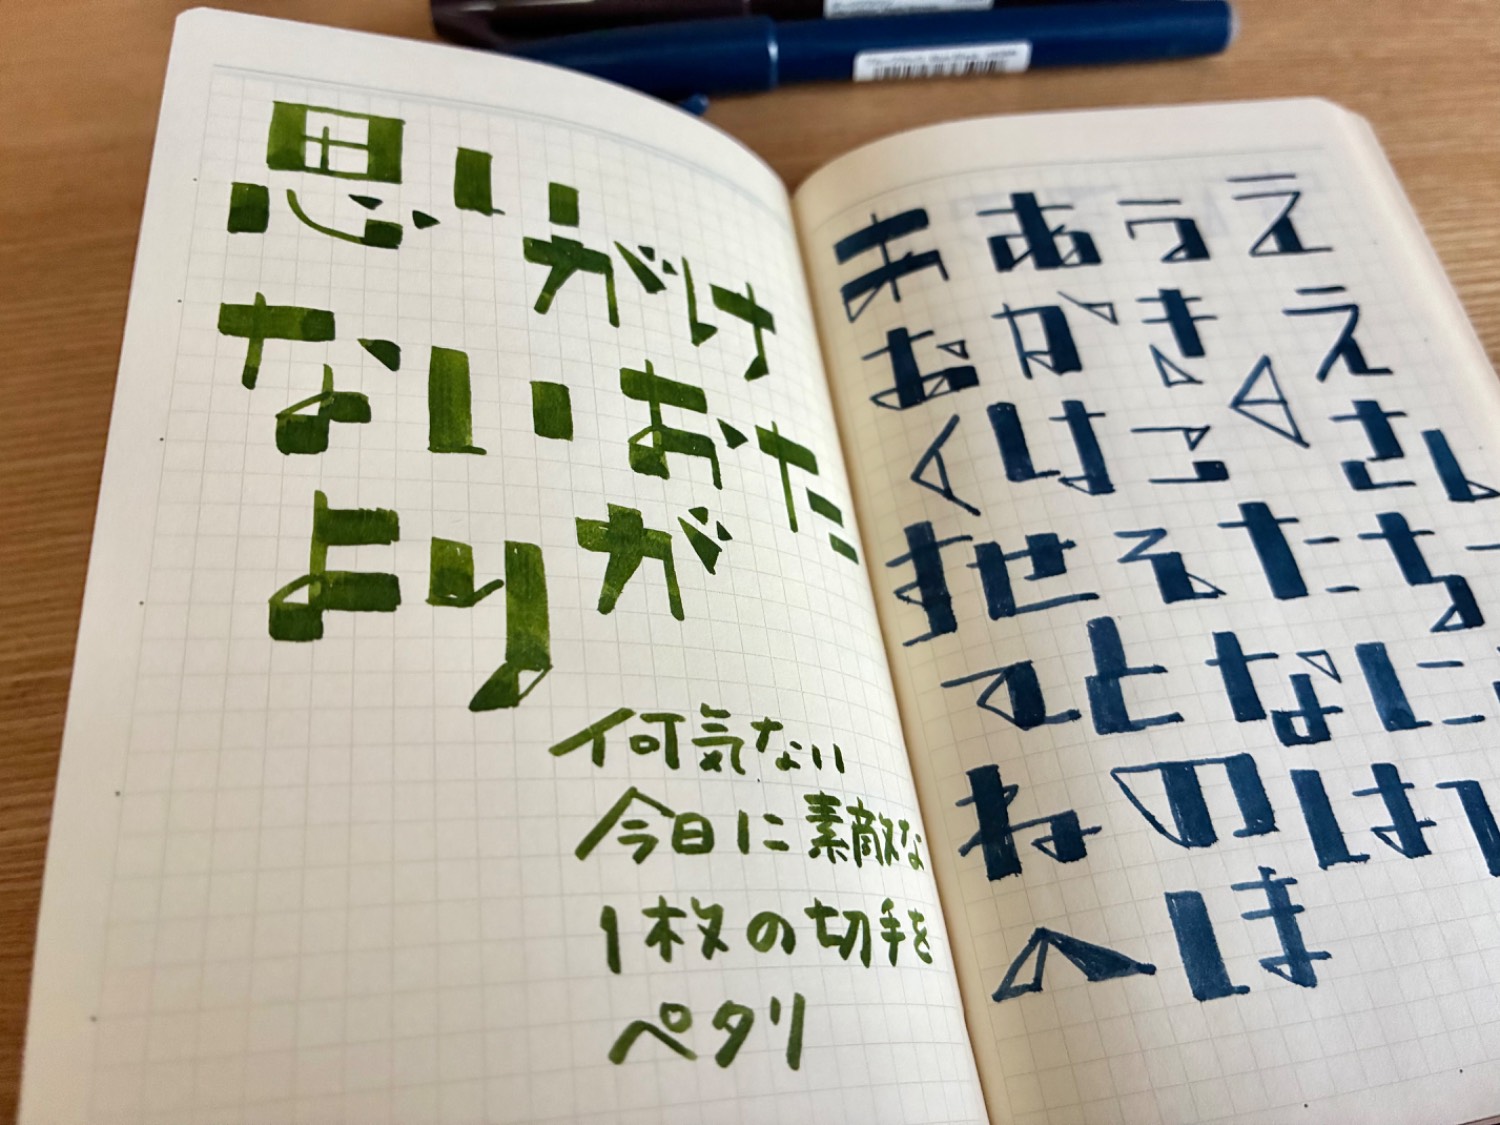 思いがけ
ないおた
よりが
何気ない
今日に素敵な
1枚の切手を
ペタリ
あうえ
おがきえ
くけこさし
すせそたち
てとなに
ねのは
へほ